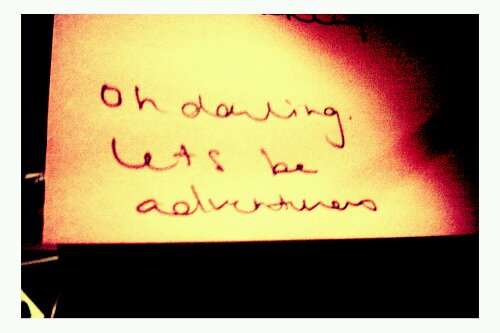 Oh darling.
Lets be
adventurers